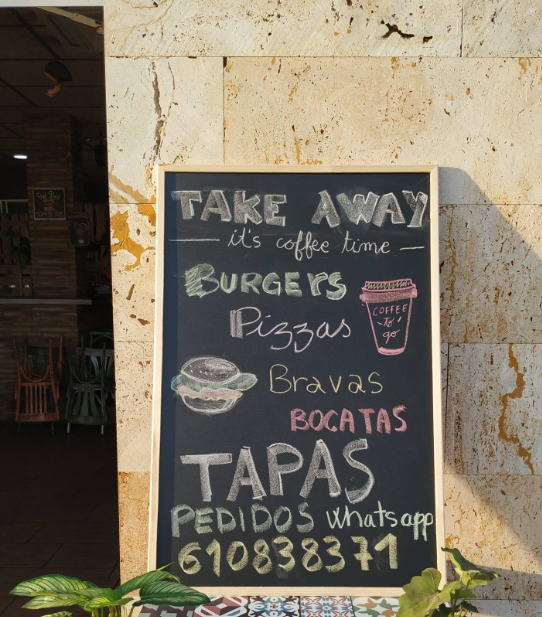 TAKE AWAY
it's coffee time
BURGERS
Pizzas
COFFEE
to
go
Bravas
BOCATAS
TAPAS
PEDIDOS whatsapp
610838371